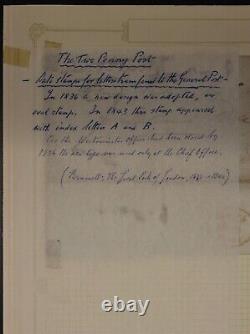 The Two Penny Post
- Date stamps for letters transferred to the General Post -
In 1836 a new design was adopted, an
oval stamp. In 1843 this stamp appeared
with index letter A and B.
As the Westminster Office had been closed by
1834 the new type was used only at the Chief Office.
( : The Local Post of London, )